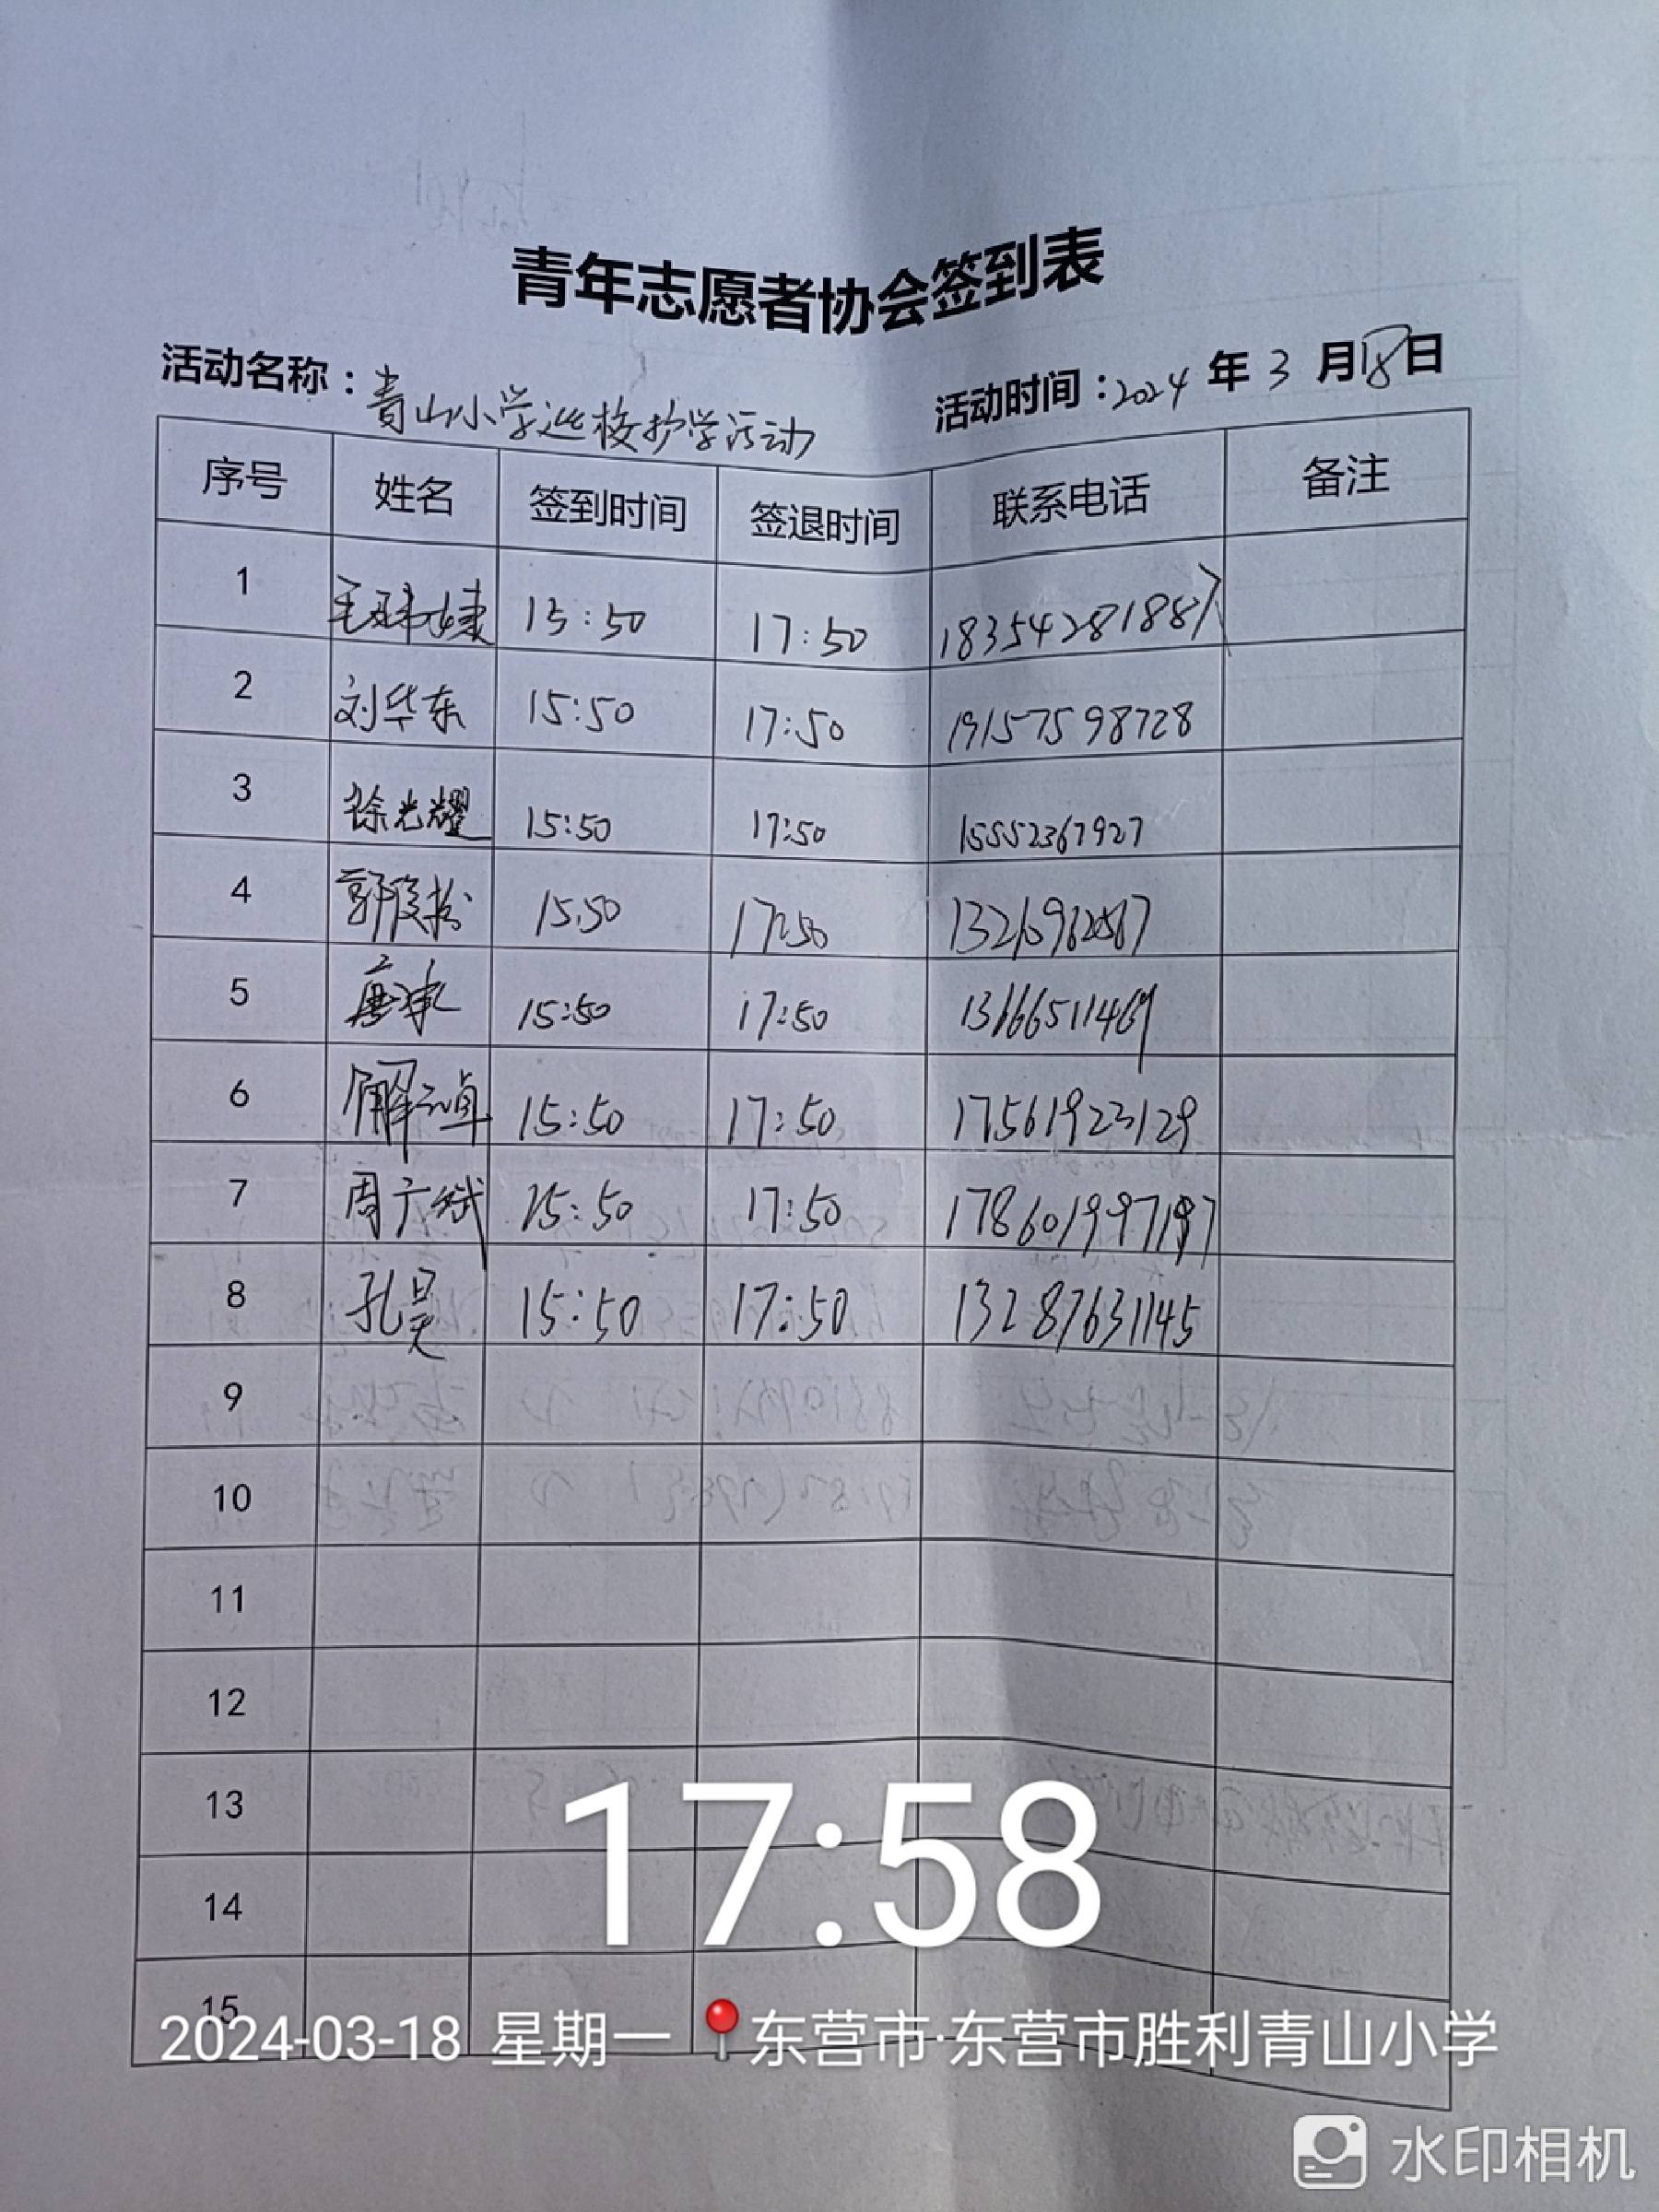 青年志愿者协会签到表
活动名称：青山小学巡校护学活动 活动时间：2024年3月18日
序号 姓名 签到时间 签退时间 联系电话 备注
1 15:50 17:50 18354281887
2 刘华东 15:50 17:50 19157598728
3 徐光耀 15:50 17:50 15552367927
4 郭俊松 15:50 17:50
5 15:50 17:50
6 15:50 17:50 17561923129
7 周广斌 15:50 17:50
8 孔昊 15:50 17:50 13287631145
9
10
11
12
13
14
15
17:58
2024-03-18 星期一 东营市·东营市胜利青山小学
水印相机